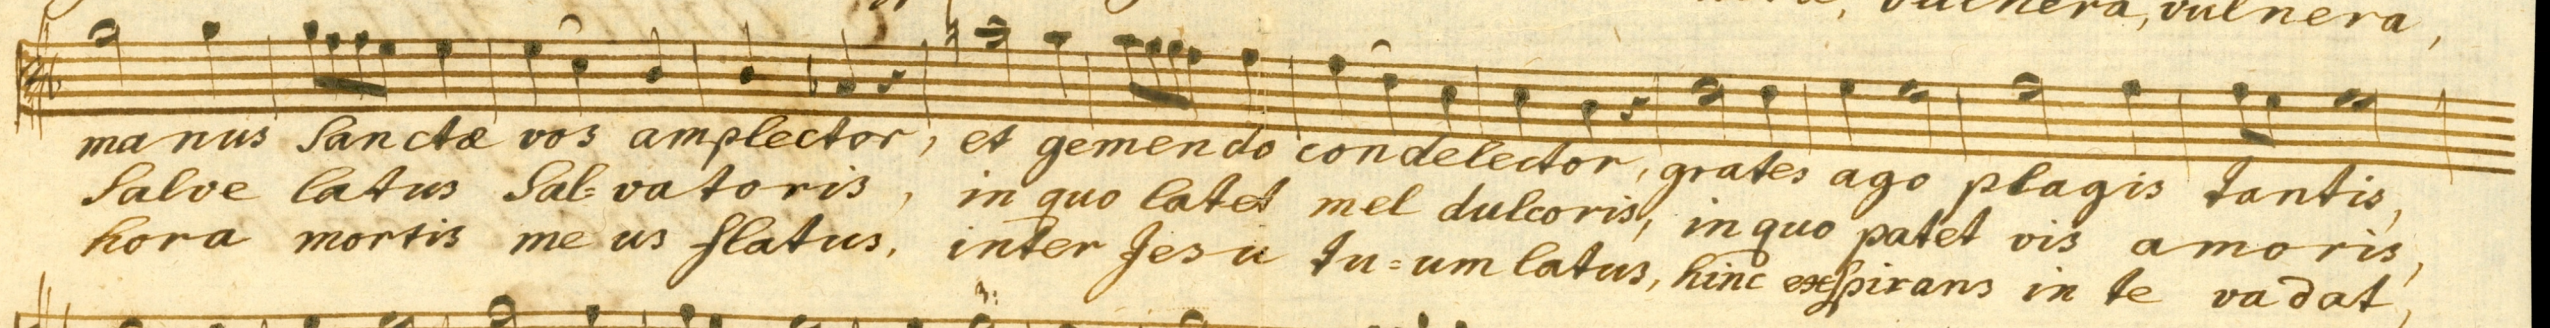 vulnera, vulnera,
manus Sanctæ vos amplector, et gemendo condelector, grates ago plagis tantis,
Salve latus Sal=vatoris, in quo latet mel dulcoris, in quo patet vis amoris,
hora mortis meus flatus, inter Jesu tu=um latus, hinc exspirans in te vadat,